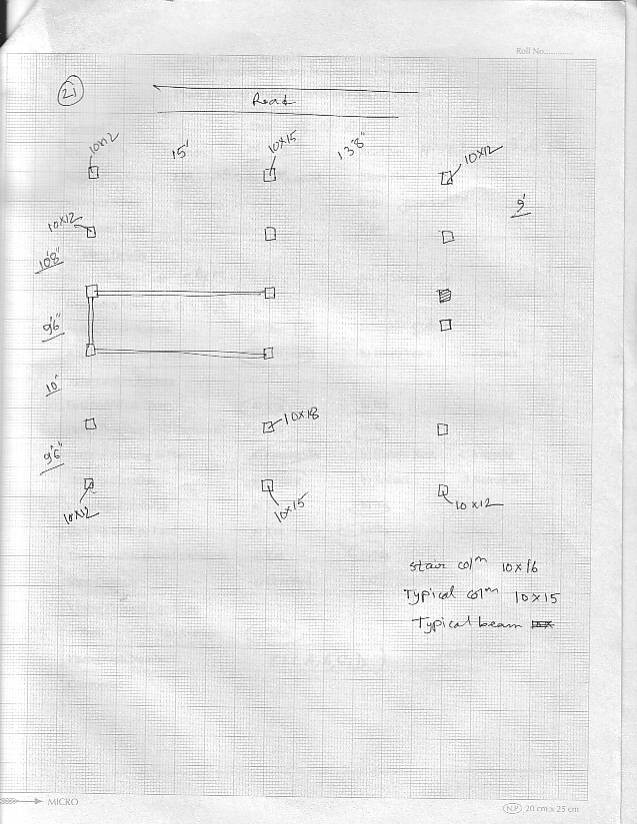 Roll No...........
2i
Road
10x12
15'
10x15
13'8"
10x12
9'
10x12
10'8"
9'6"
10'
10x18
9'6"
10x12
10x15
10x12
stair colm 10x16
Typical colm 10x15
Typical beam
MICRO
N.P. 20 cm x 25 cm